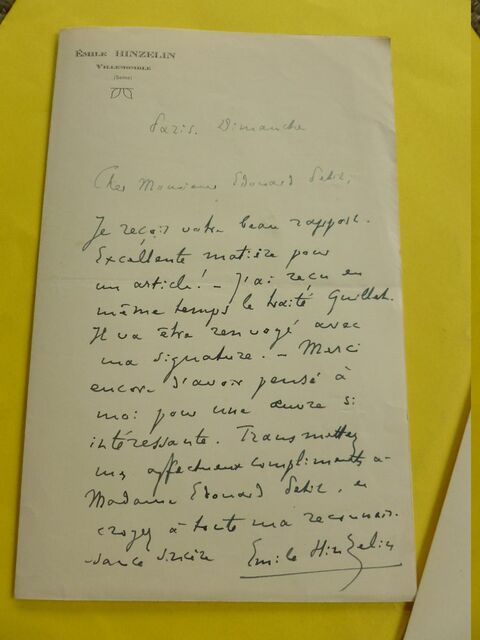 ÉMILE HINZELIN
VILLEMOMBLE
(Seine)
Paris. Dimanche
Cher Monsieur Edouard Petit,
Je reçois votre beau rapport.
Excellente matière pour
un article! – J'ai reçu en
même temps le traité Guillet.
Il va être renvoyé avec
ma signature. – Merci
encore d'avoir pensé à
moi pour une œuvre si
intéressante. Transmettez
mes affectueux compliments à
Madame Edouard Petit, et
croyez à toute ma reconnais-
sance sincère Emile Hinzelin